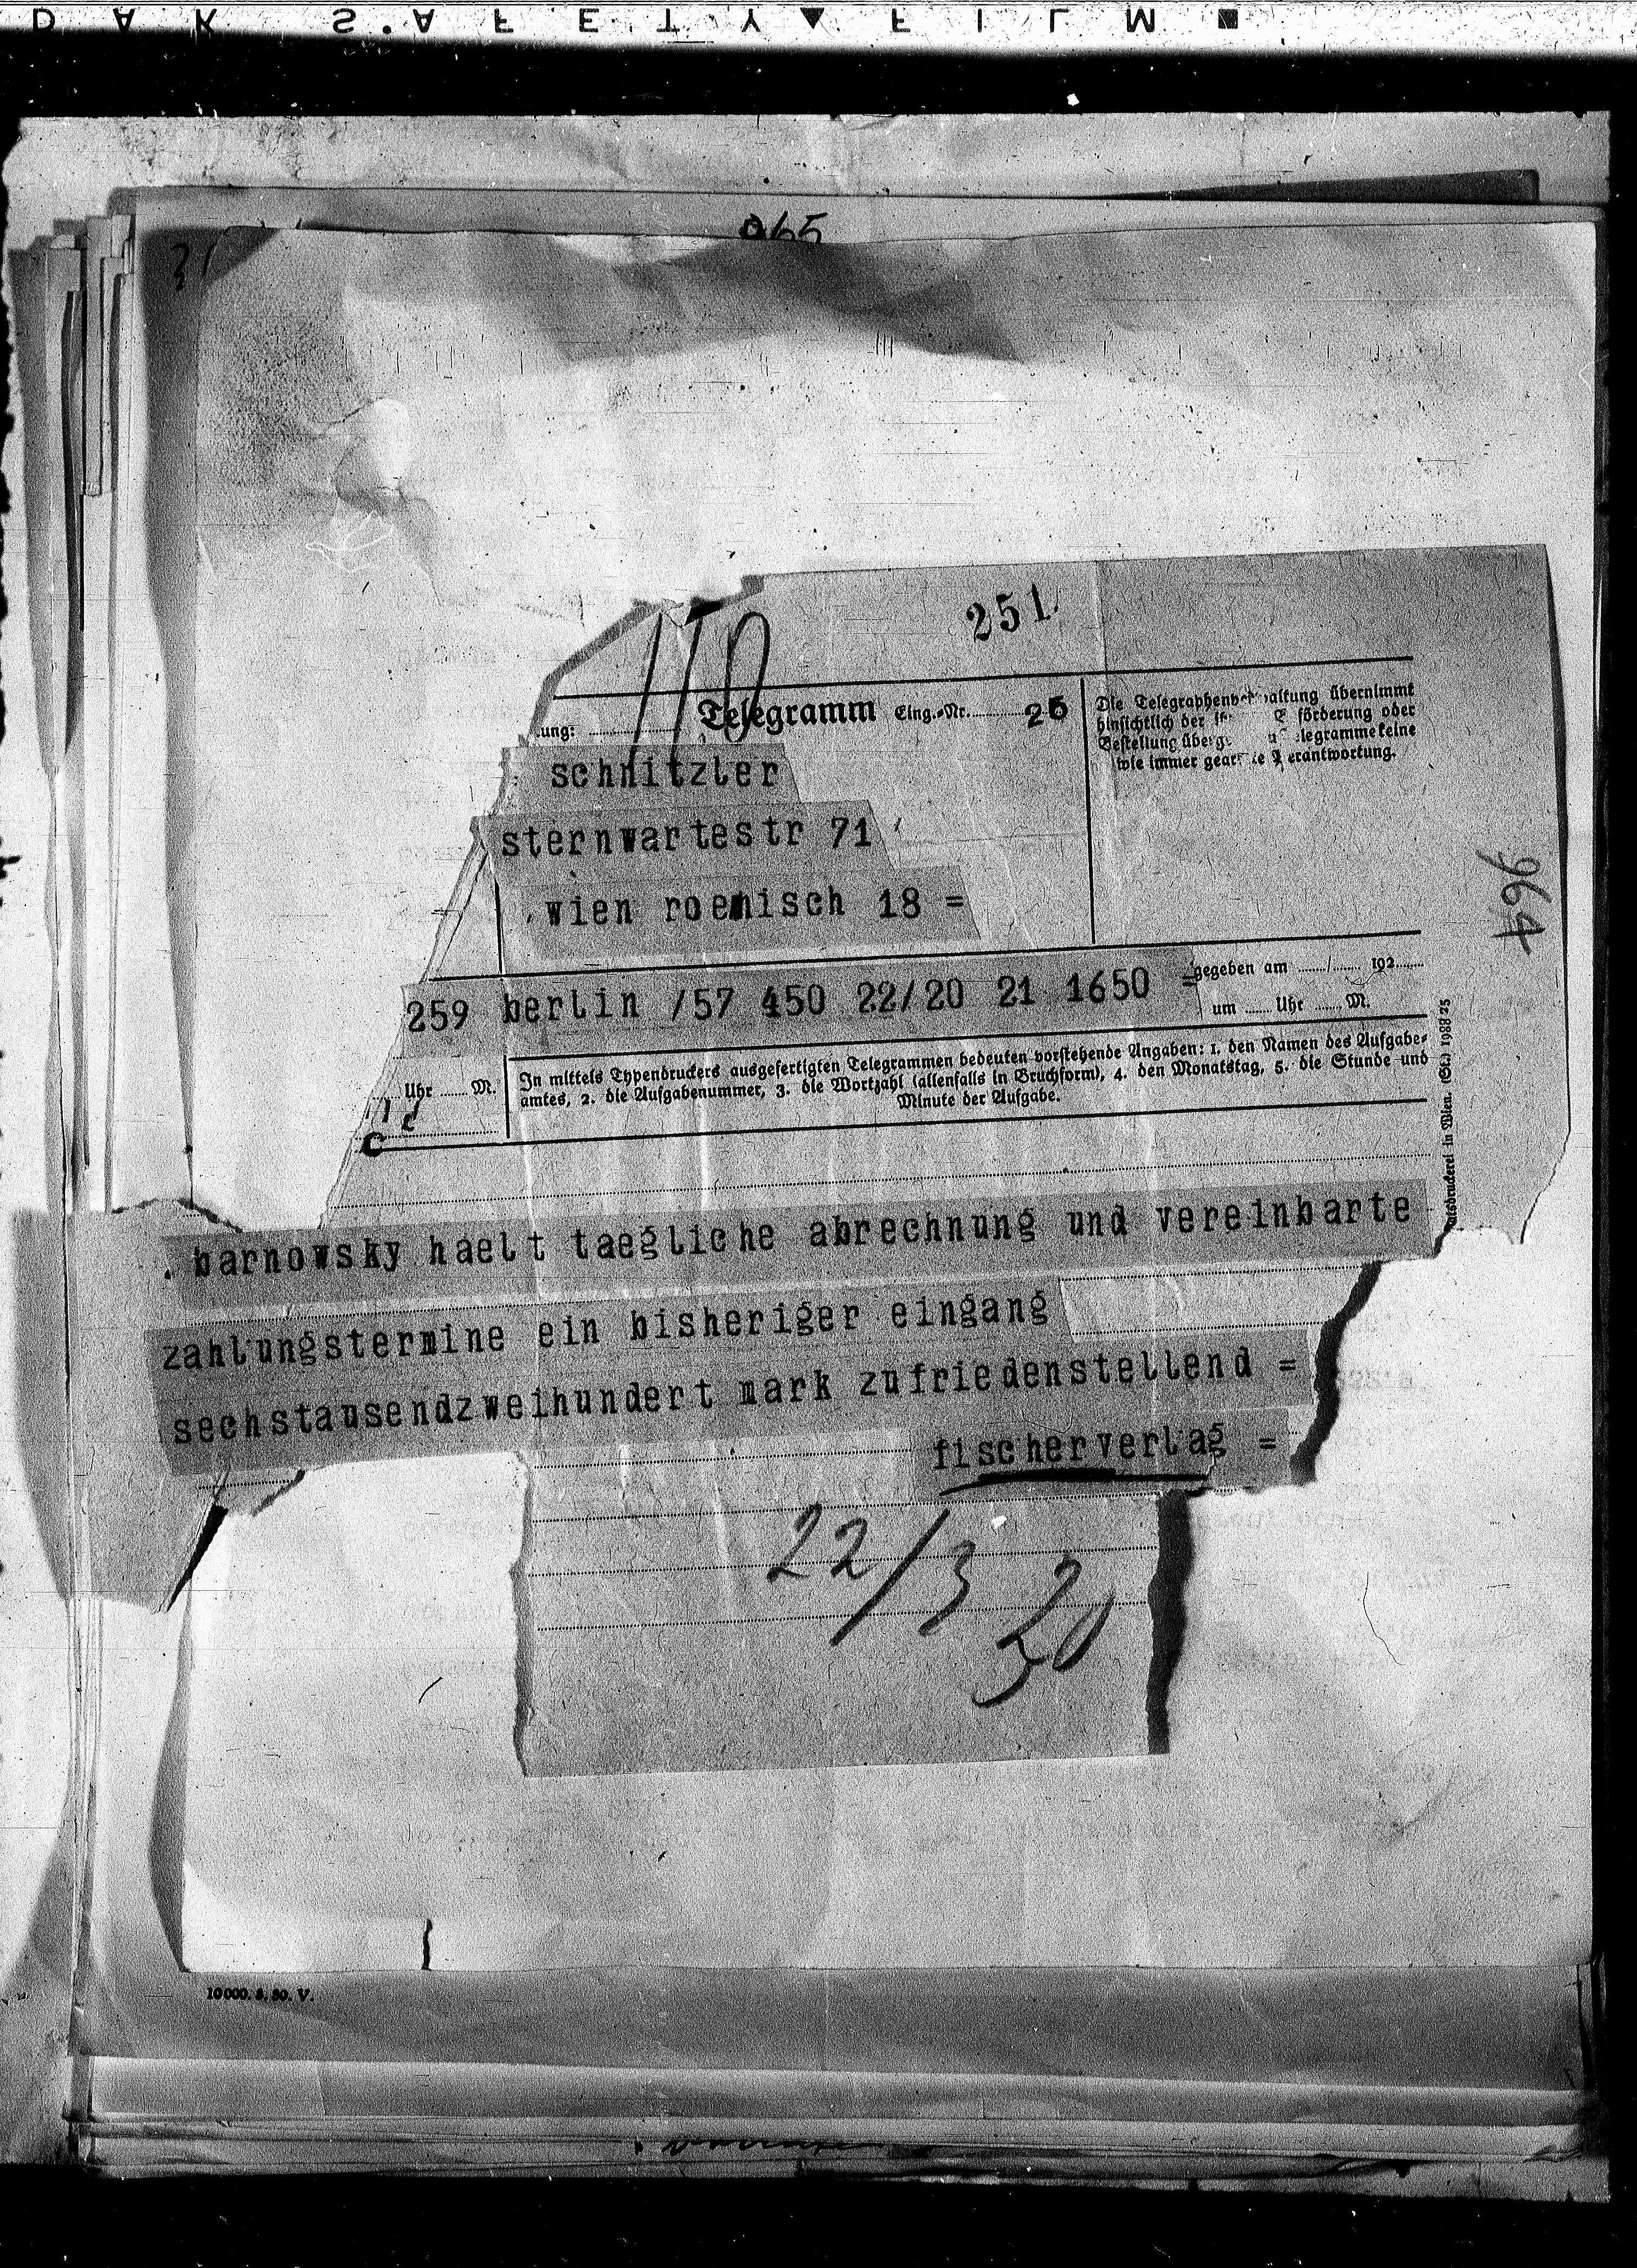 DAK SAFETY FILM
965
31
251.
110
.ung: Telegramm Eing.-Nr. 25
schnitzler
sternwartestr 71
wien roemisch 18 =
Die Telegraphenverwaltung übernimmt
hinsichtlich der förderung oder
Bestellung überg elegramme keine
wie immer gear erantwortung.
964
259 berlin /57 450 22/20 21 1650 =
gegeben am / 192
um Uhr M.
Uhr M.
In mittels Typendruckers ausgefertigten Telegrammen bedeuten vorstehende Angaben: 1. den Namen des Aufgabe-
amtes, 2. die Aufgabenummer, 3. die Wortzahl (allenfalls in Bruchform), 4. den Monatstag, 5. die Stunde und
Minute der Aufgabe.
atsdruckerei in Wien. (St.) 1988 25
. barnowsky haelt taegliche abrechnung und vereinbarte
zahlungstermine ein bisheriger eingang
sechstausendzweihundert mark zufriedenstellend =
fischerverlag =
22/3 20
10000. 3. 30. V.